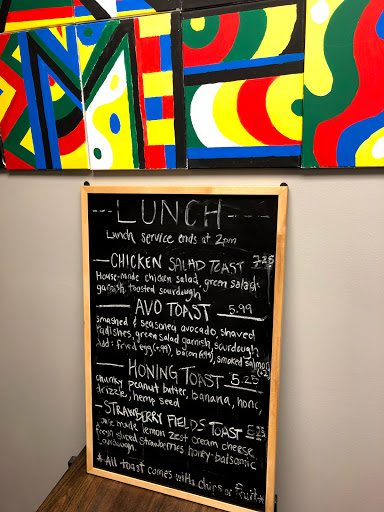 --- LUNCH ---
Lunch service ends at 2pm
- CHICKEN SALAD TOAST 7.25
House-made chicken salad, green salad
garnish, toasted sourdough
AVO TOAST 5.99
smashed & seasoned avocado, shaved
radishes, green salad garnish, sourdough
Add: fried egg (+.99), bacon smoked salmon
HONING TOAST 5.25
chunky peanut butter, banana, honey
drizzle, hemp seed
- STRAWBERRY FIELDS TOAST
house made lemon zest cream cheese
fresh sliced strawberries honey-balsamic
sourdough.
* All toast comes with chips or fruit *